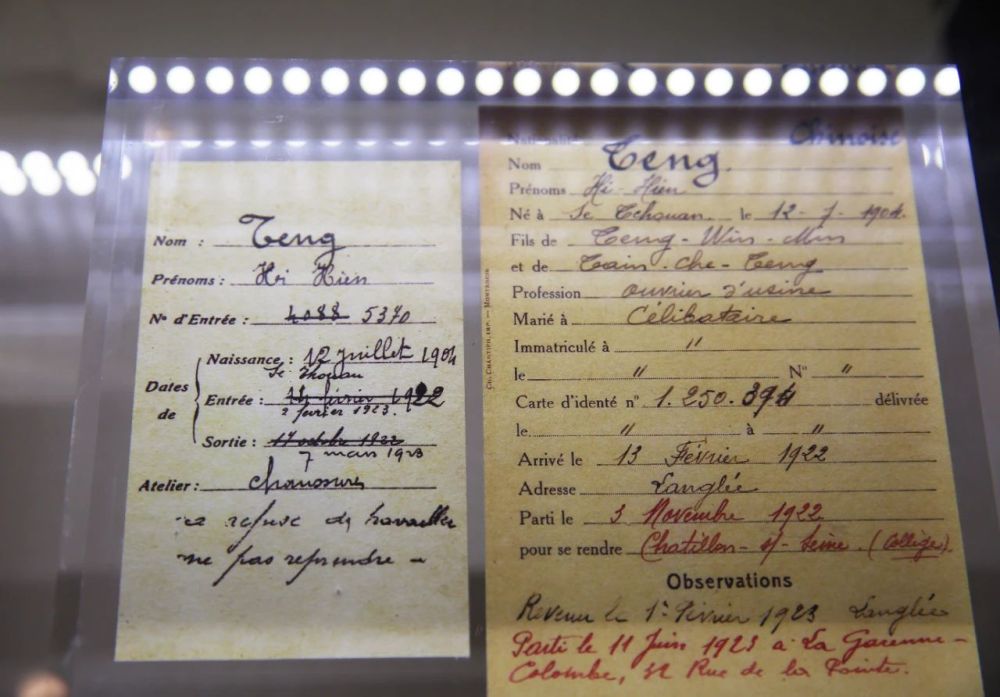 Nom : Teng
Prénoms : Hi Hien
N° d'Entrée : 4088 5370
Dates de
Naissance : 12 juillet 1904
Se Thouan
Entrée : 14 février 1922
2 fevrier 1923.
Sortie : 17 octobre 1922
7 mars 1923
Atelier : chaussures
a refusé de travailler
ne pas reprendre -
Nationalité Chinoise
Nom Teng.
Prénoms Hi-Hien
Né à Se Tchouan. le 12-7-1904.
Fils de Teng-Win-Min
et de Tain-Che-Teng
Profession ouvrier d'usine
Marié à Célibataire
Immatriculé à "
le " N° "
Carte d'identé n° 1.250.394 délivrée
le " à "
Arrivé le 13 Février 1922
Adresse Langlée
Parti le 3 Novembre 1922
pour se rendre Chatillon-s/-Seine. (Collège).
Observations
Revenu le 1er Février 1923 Langlée
Parti le 11 Juin 1923 à La Garenne-
Colombe, 39 Rue de la Pointe.
CH. CHANTIPH. IMP. — MONTARGIS